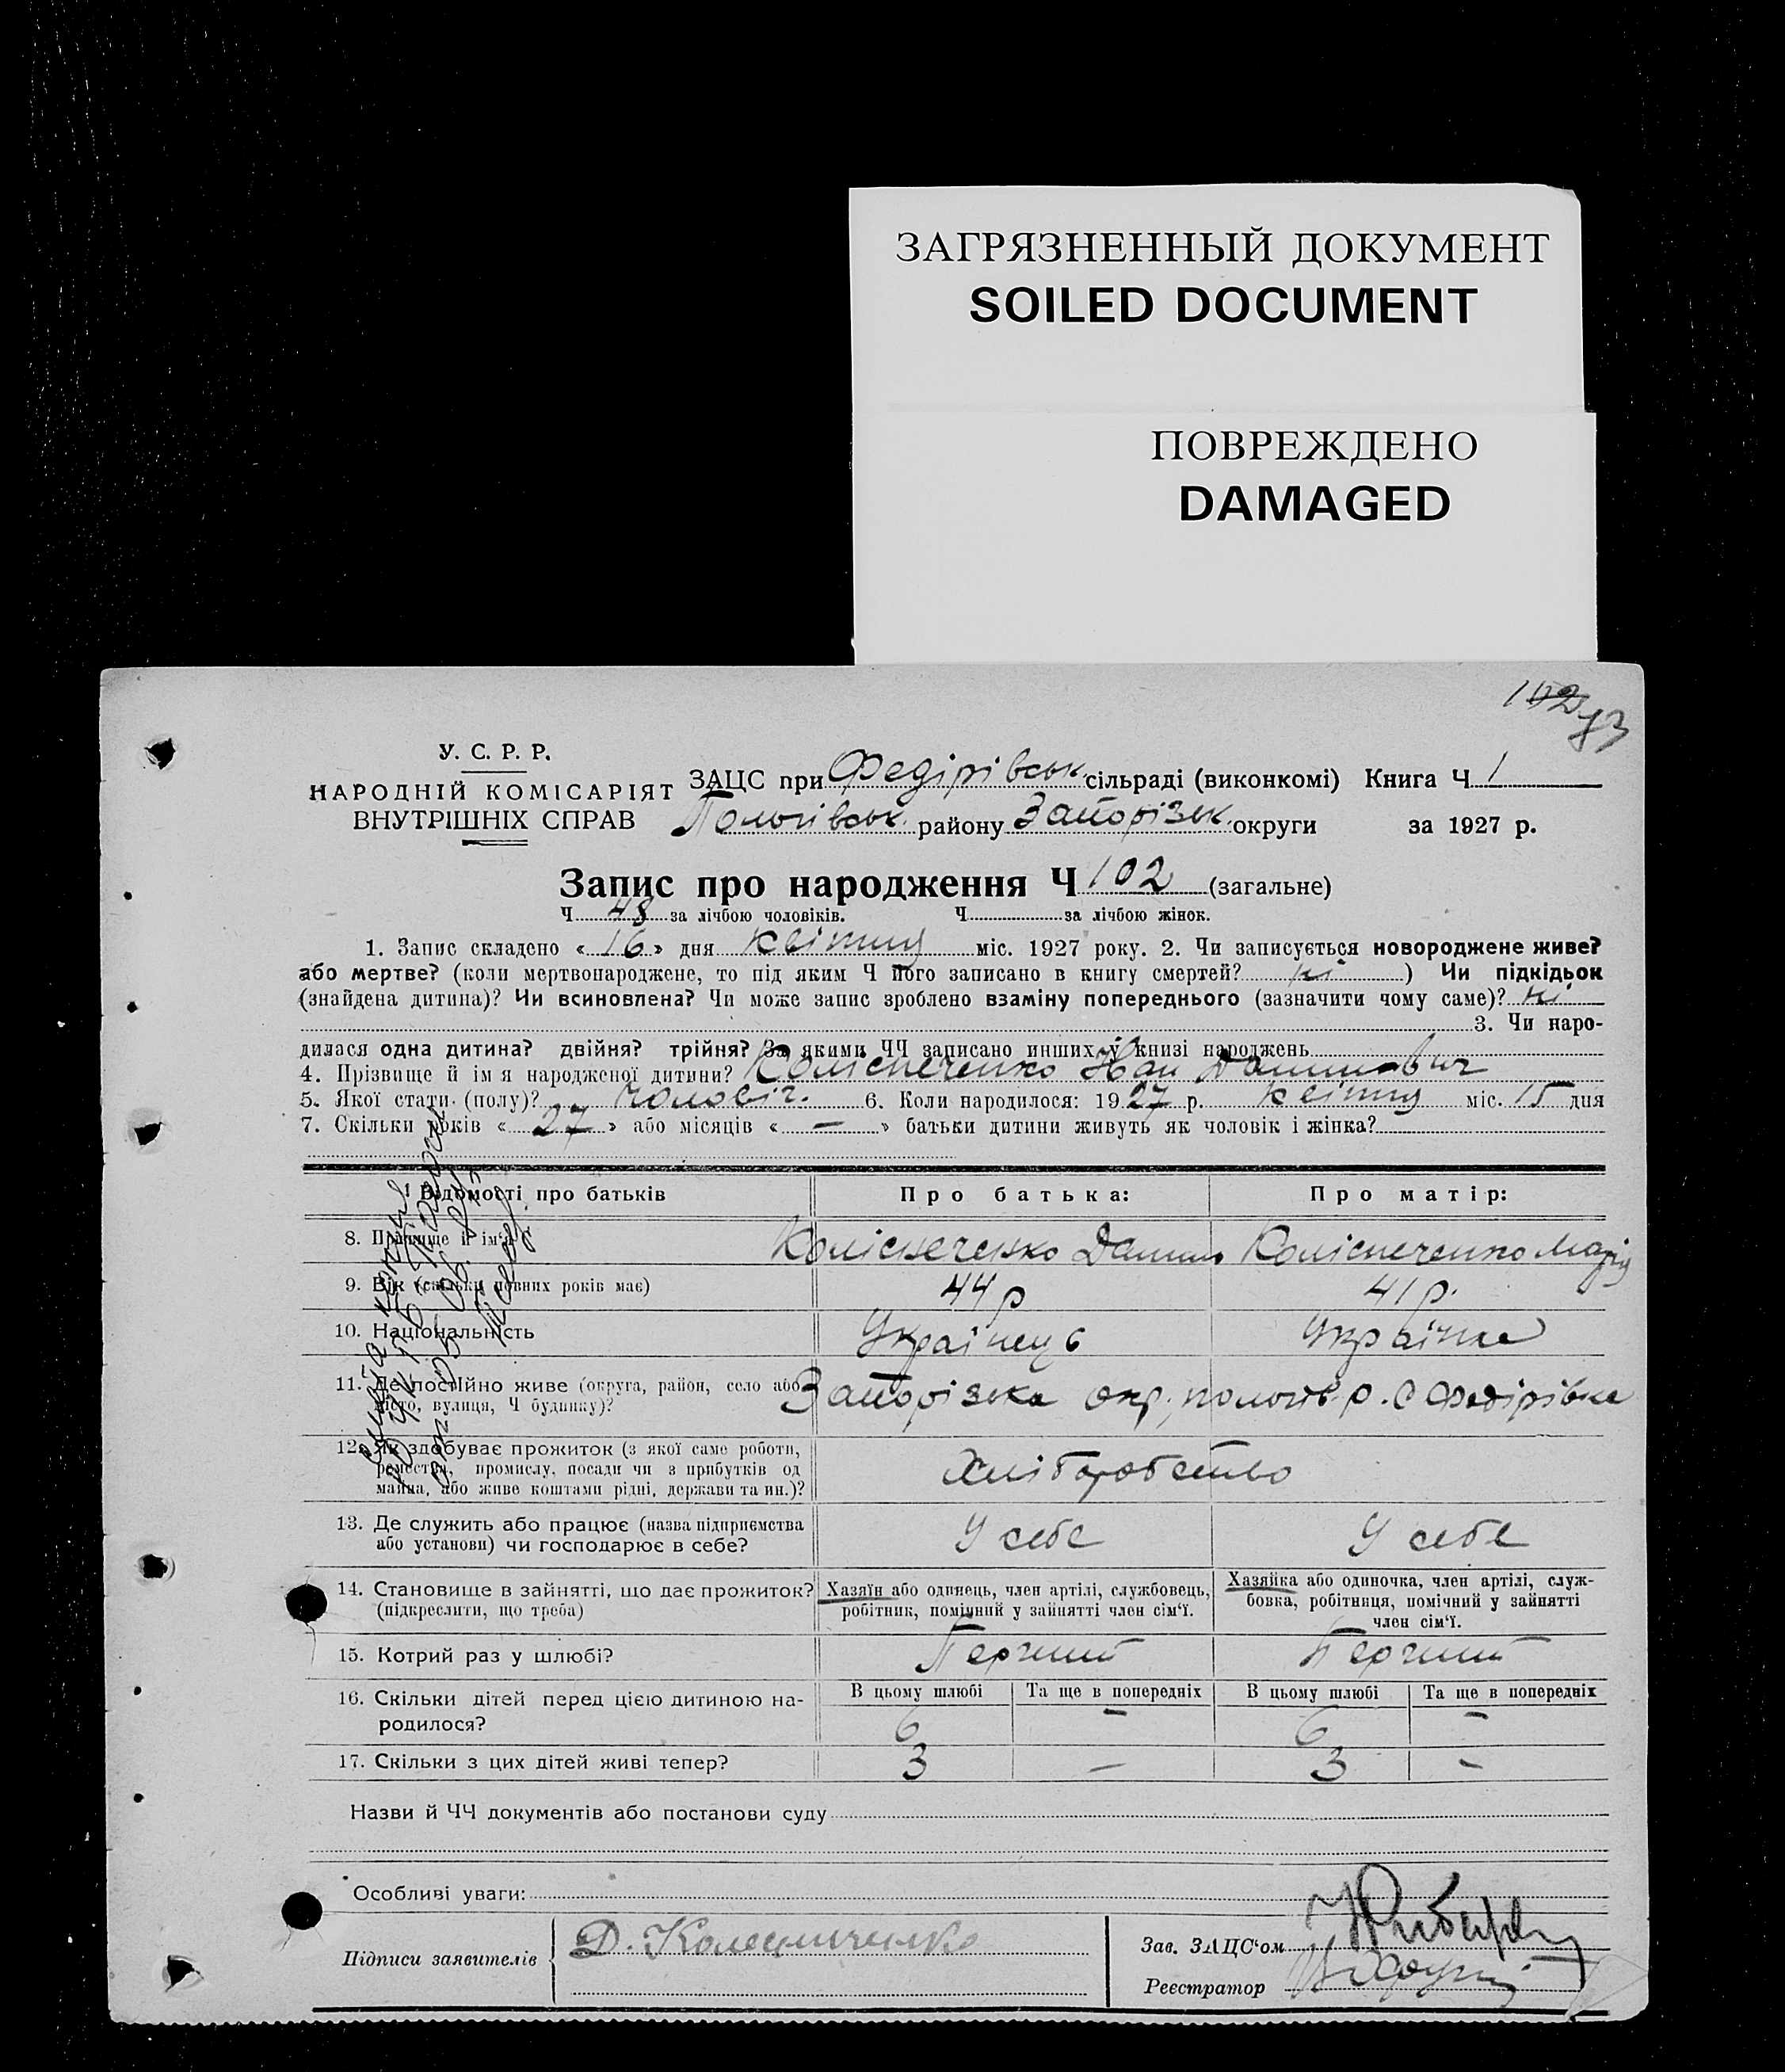 ЗАГРЯЗНЕННЫЙ ДОКУМЕНТ
SOILED DOCUMENT
ПОВРЕЖДЕНО
DAMAGED
102
У. С. Р. Р.
НАРОДНІЙ КОМІСАРІЯТ
ВНУТРІШНІХ СПРАВ
ЗАЦС при Федірівськ. сільраді (виконкомі) Книга Ч. 1
Пологівськ. району Запорізьк. округи за 1927 р.
Запис про народження Ч 102 (загальне)
Ч. 48 за лічбою чоловіків. Ч. за лічбою жінок.
1. Запис складено « 16 » дня квітня міс. 1927 року. 2. Чи записується новороджене живе?
або мертве? (коли мертвонароджене, то під яким Ч його записано в книгу смертей? ні ) Чи підкідьок
(знайдена дитина)? Чи всиновлена? Чи може запис зроблено взаміну попереднього (зазначити чому саме)? ні
3. Чи наро-
дилася одна дитина? двійня? трійня? За якими ЧЧ записано инших у книзі народжень
4. Прізвище й ім я народженої дитини? Коліснеченко Данилович
5. Якої стати (полу)? чоловіч. 6. Коли народилося: 1927 р. квітня міс. 15 дня
7. Скільки років « 27 » або місяців « — » батьки дитини живуть як чоловік і жінка?
Відомості про батьків Про батька: Про матір:
8. Прізвище й ім'я Коліснеченко Данило Коліснеченко Марія
9. Вік (скільки повних років має) 44 р 41 р.
10. Національність Українець Українка
11. Де постійно живе (округа, район, село або
місто, вулиця, Ч будинку)? Запорізька окр., пологів. р. с Федірівка
12. Як здобуває прожиток (з якої саме роботи,
ремества, промислу, посади чи з прибутків од
майна, або живе коштами рідні, держави та ин.)? Хліборобство
13. Де служить або працює (назва підприємства
або установи) чи господарює в себе? У себе У себе
14. Становище в зайнятті, що дає прожиток?
(підкреслити, що треба)
Хазяїн або одинець, член артілі, службовець,
робітник, помічний у зайнятті член сім'ї.
Хазяйка або одиночка, член артілі, служ-
бовка, робітниця, помічний у зайнятті
член сім'ї.
15. Котрий раз у шлюбі? Перший Перший
16. Скільки дітей перед цією дитиною на-
родилося?
В цьому шлюбі Та ще в попередніх В цьому шлюбі Та ще в попередніх
6 — 6 —
17. Скільки з цих дітей живі тепер? 3 — 3 —
Назви й ЧЧ документів або постанови суду
Особливі уваги:
Підписи заявителів Д. Колесниченко
Зав. ЗАЦС'ом
Реєстратор